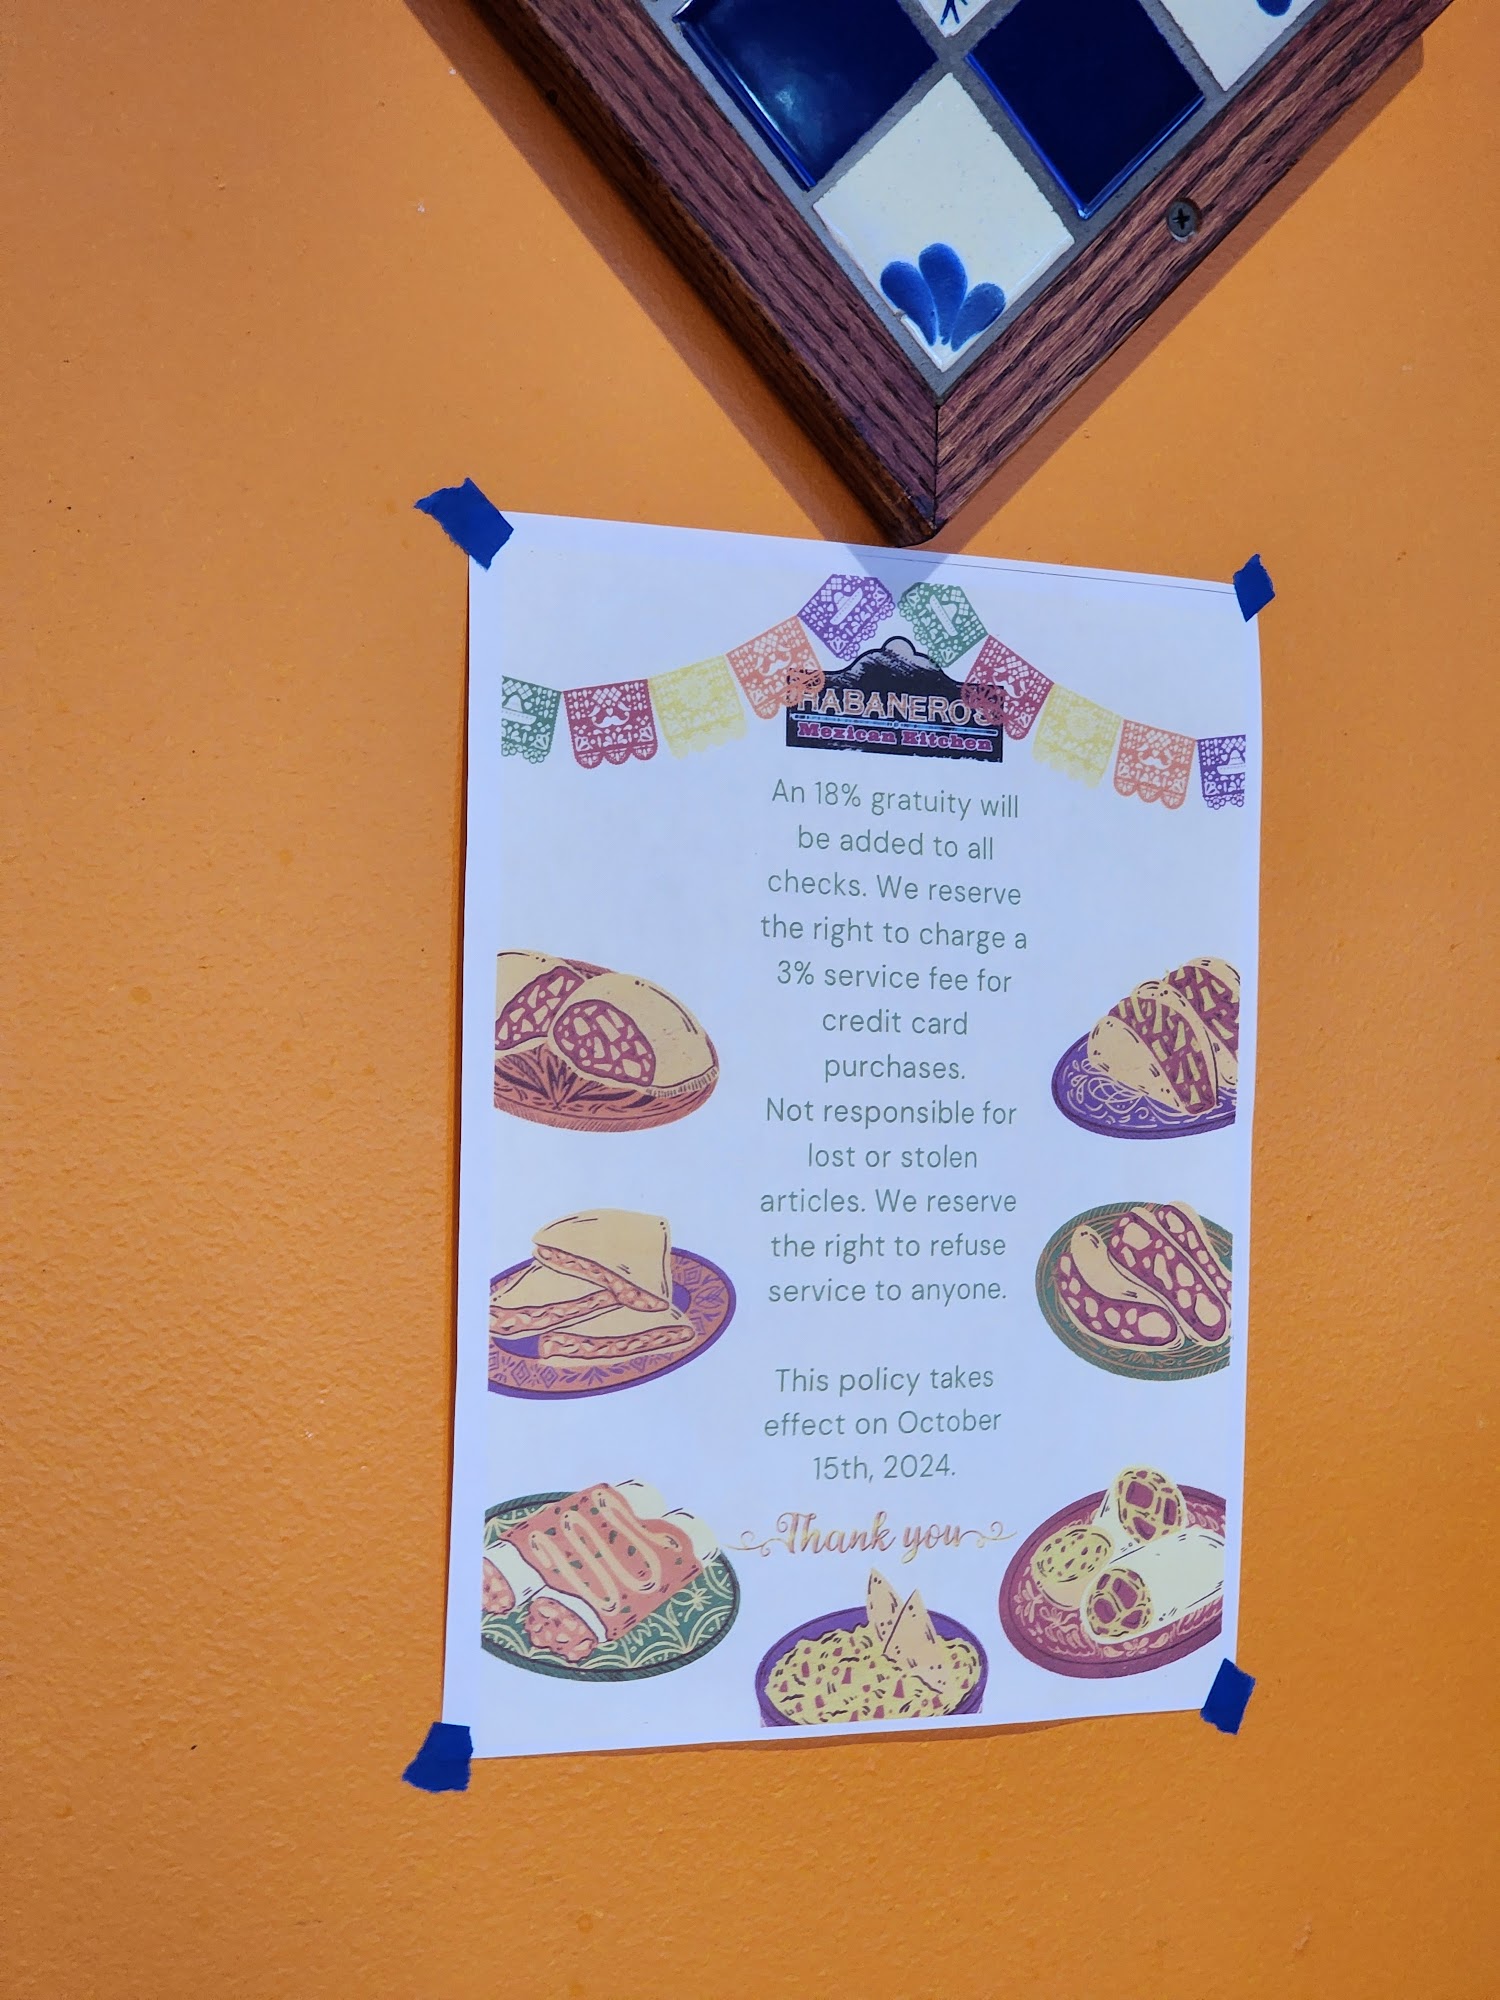 HABANERO'S
Mexican Kitchen
An 18% gratuity will
be added to all
checks. We reserve
the right to charge a
3% service fee for
credit card
purchases.
Not responsible for
lost or stolen
articles. We reserve
the right to refuse
service to anyone.
This policy takes
effect on October
15th, 2024.
Thank you